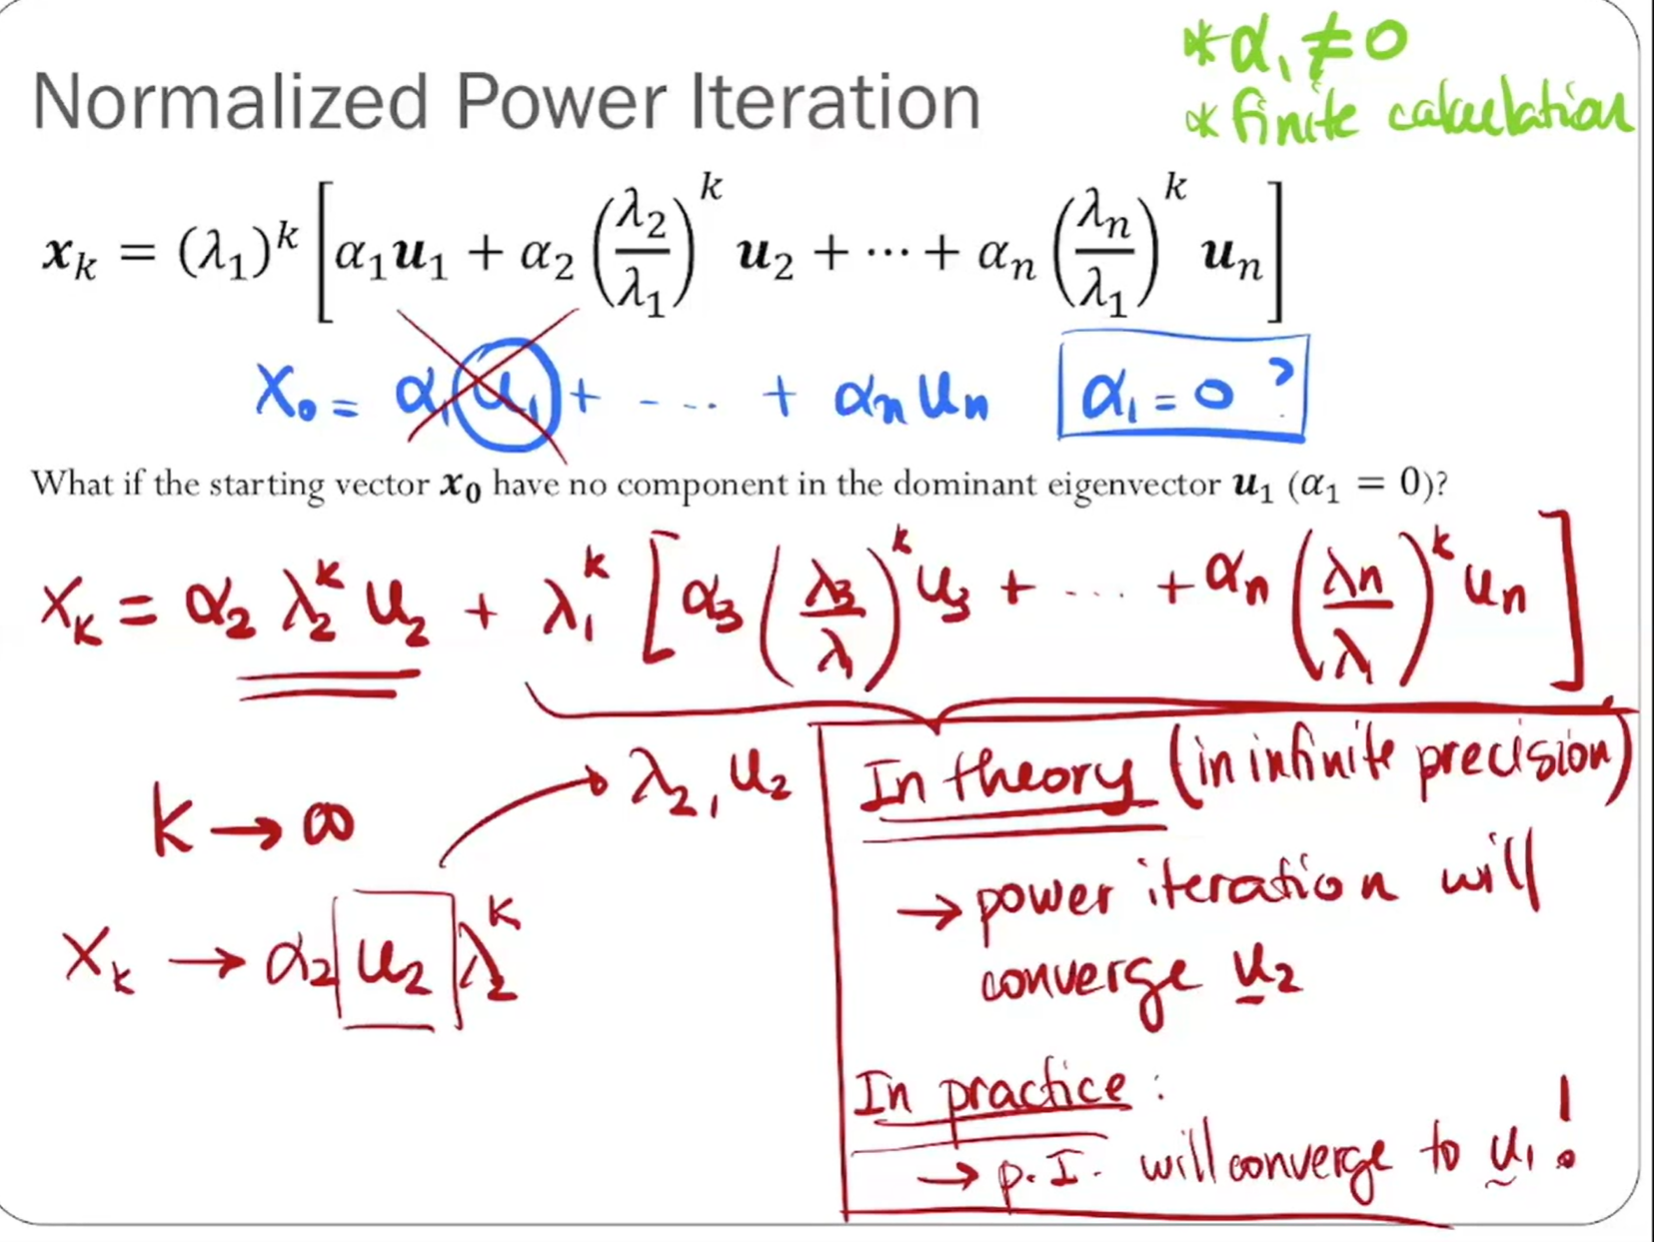 * α₁ ≠ 0
Normalized Power Iteration
* finite calculation
𝒙ₖ = (λ₁)ᵏ [α₁𝒖₁ + α₂ (λ₂/λ₁)ᵏ 𝒖₂ + ⋯ + αₙ (λₙ/λ₁)ᵏ 𝒖ₙ]
x₀ = α₁ u₁ + - ... + αₙ uₙ α₁ = 0 ?
What if the starting vector 𝒙₀ have no component in the dominant eigenvector 𝒖₁ (α₁ = 0)?
xₖ = α₂ λ₂ᵏ u₂ + λ₁ᵏ [α₃ (λ₃/λ)ᵏ u₃ + ... + αₙ (λₙ/λ)ᵏ uₙ]
→ λ₂, u₂
In theory (in infinite precision)
k → ∞
→ power iteration will
xₖ → α₂ u₂ λ₂ᵏ
converge u₂
In practice :
→ p. I. will converge to u₁ !